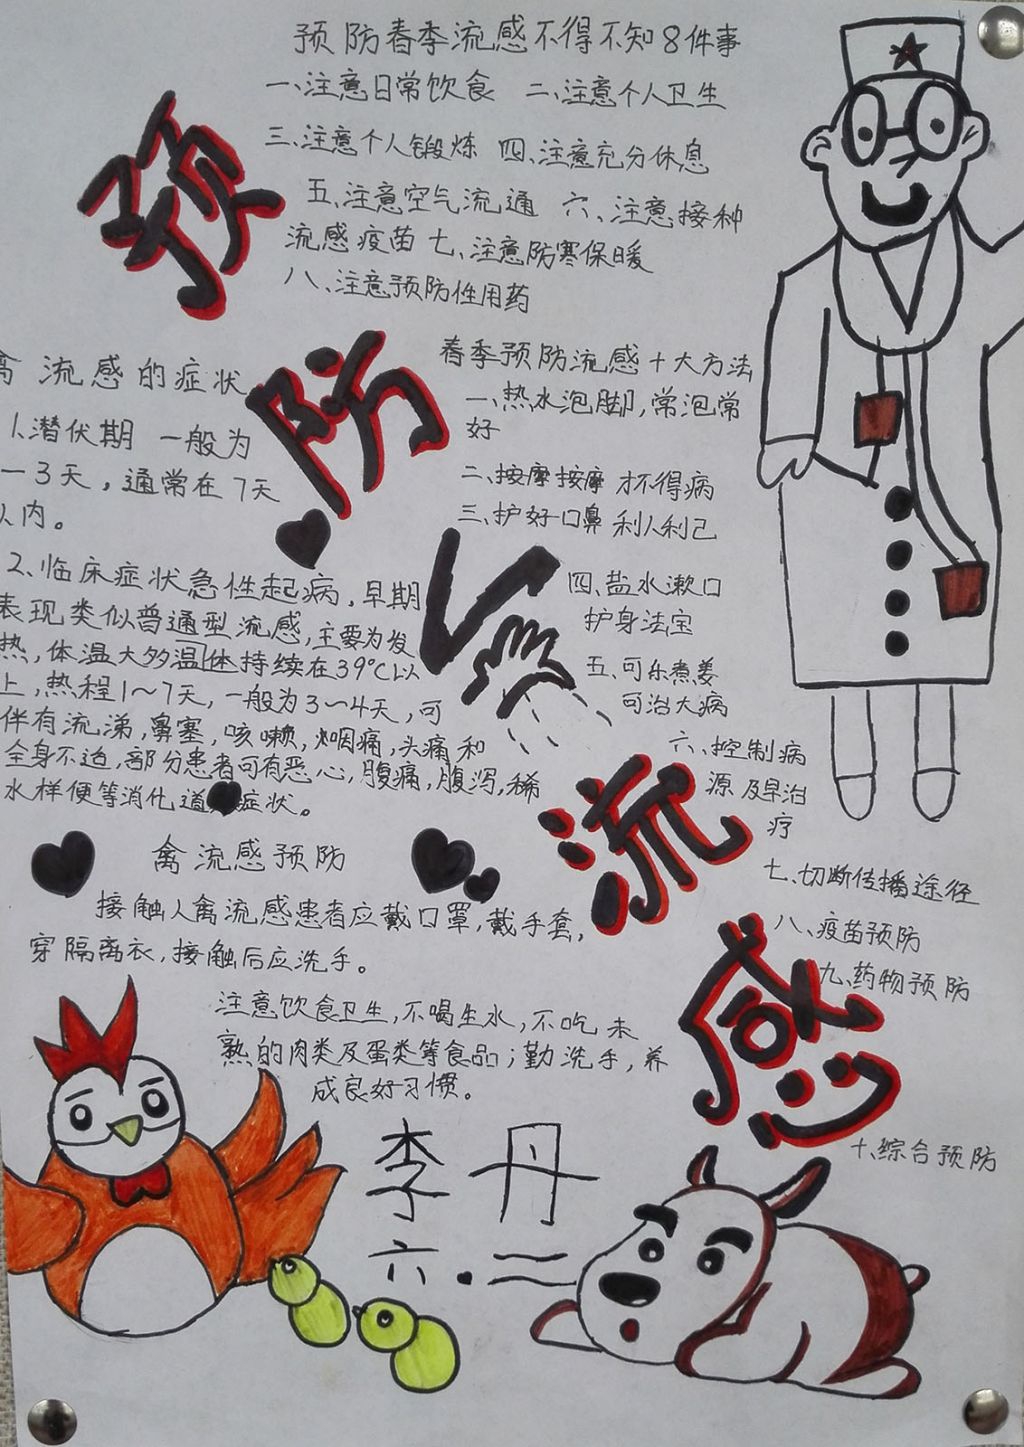 预防春季流感不得不知8件事
一、注意日常饮食 二、注意个人卫生
三、注意个人锻炼 四、注意充分休息
五、注意空气流通 六、注意接种
流感疫苗 七、注意防寒保暖
八、注意预防性用药
预
防
流
感
春季预防流感十大方法
一、热水泡脚,常泡常
好
二、按摩按摩 才不得病
三、护好口鼻 利人利己
四、盐水漱口
护身法宝
五、可乐煮姜
可治大病
六、控制病
源 及早治
疗
七、切断传播途径
八、疫苗预防
九、药物预防
十、综合预防
禽 流感的症状
1.潜伏期 一般为
一3天,通常在7天
以内。
2、临床症状急性起病,早期
表现类似普通型流感,主要为发
热,体温大多温体持续在39℃以
上,热程1~7天,一般为3~4天,可
伴有流涕,鼻塞,咳嗽,咽痛,头痛和
全身不适,部分患者可有恶心,腹痛,腹泻,稀
水样便等消化道症状。
禽流感预防
接触人禽流感患者应戴口罩,戴手套,
穿隔离衣,接触后应洗手。
注意饮食卫生,不喝生水,不吃未
熟的肉类及蛋类等食品;勤洗手,养
成良好习惯。
李丹
六.二